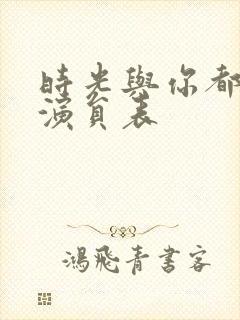 時光與你都
演員表
鴻飛青書客